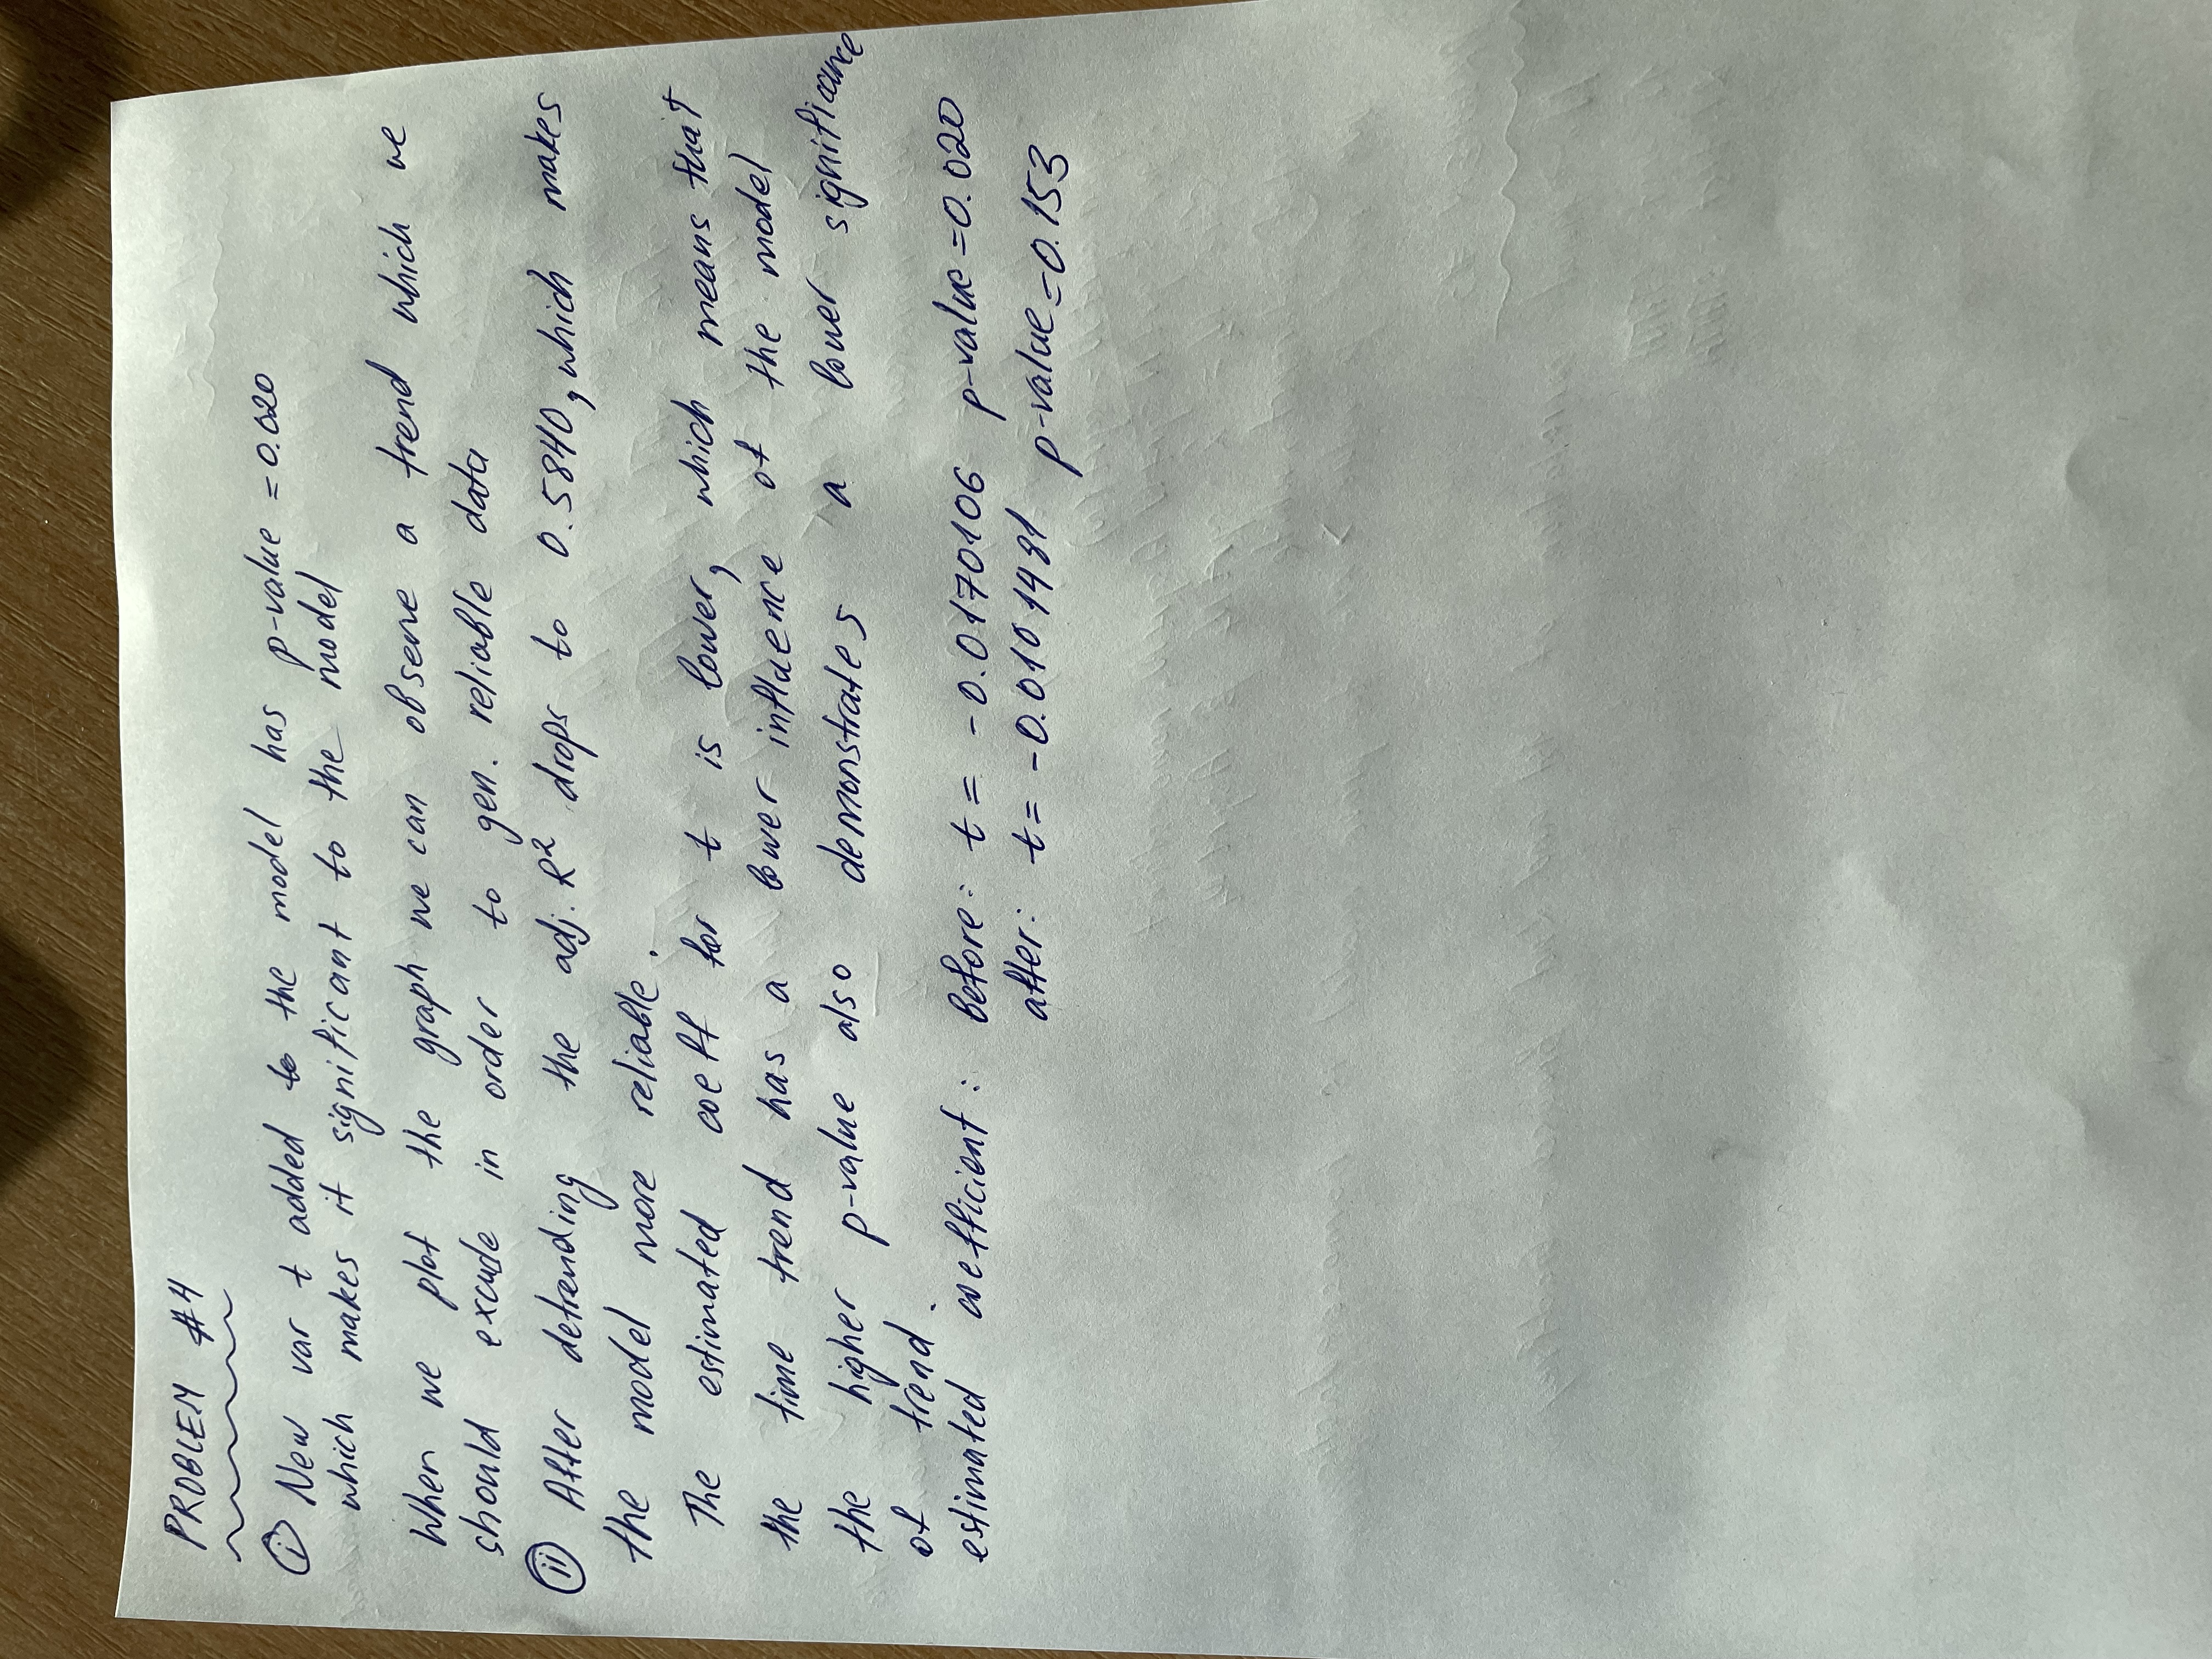 PROBLEM #4
i New var t added to the model has p-value = 0.020
which makes it significant to the model
When we plot the graph we can observe a trend which we
should excude in order to gen. reliable data
ii After detrending the adj. R² drops to 0.5840, which makes
the model more reliable.
The estimated coeff for t is lower, which means that
the time trend has a lower influence of the model
the higher p-value also demonstrates a lower significance
of trend.
estimated coefficient: Before: t = -0.0170106 p-value = 0.020
after: t = -0.0101481 p-value = 0.153